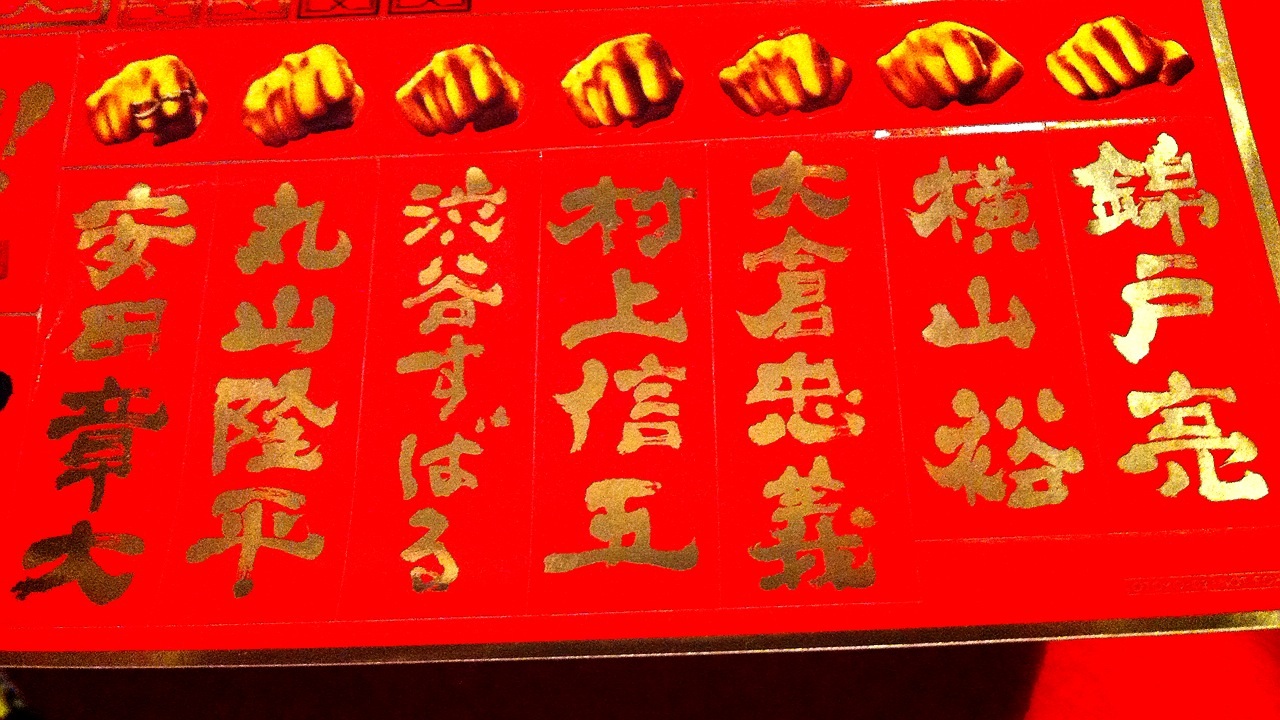 錦戸亮
横山裕
大倉忠義
村上信五
渋谷すばる
丸山隆平
安田章大